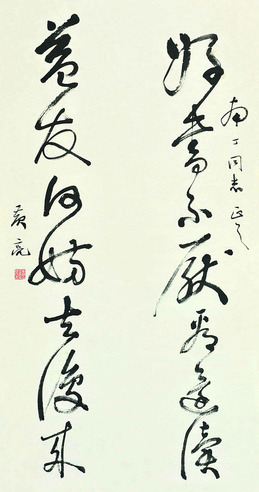 好書不厭看還讀
南丁同志正之
益友何妨去復來